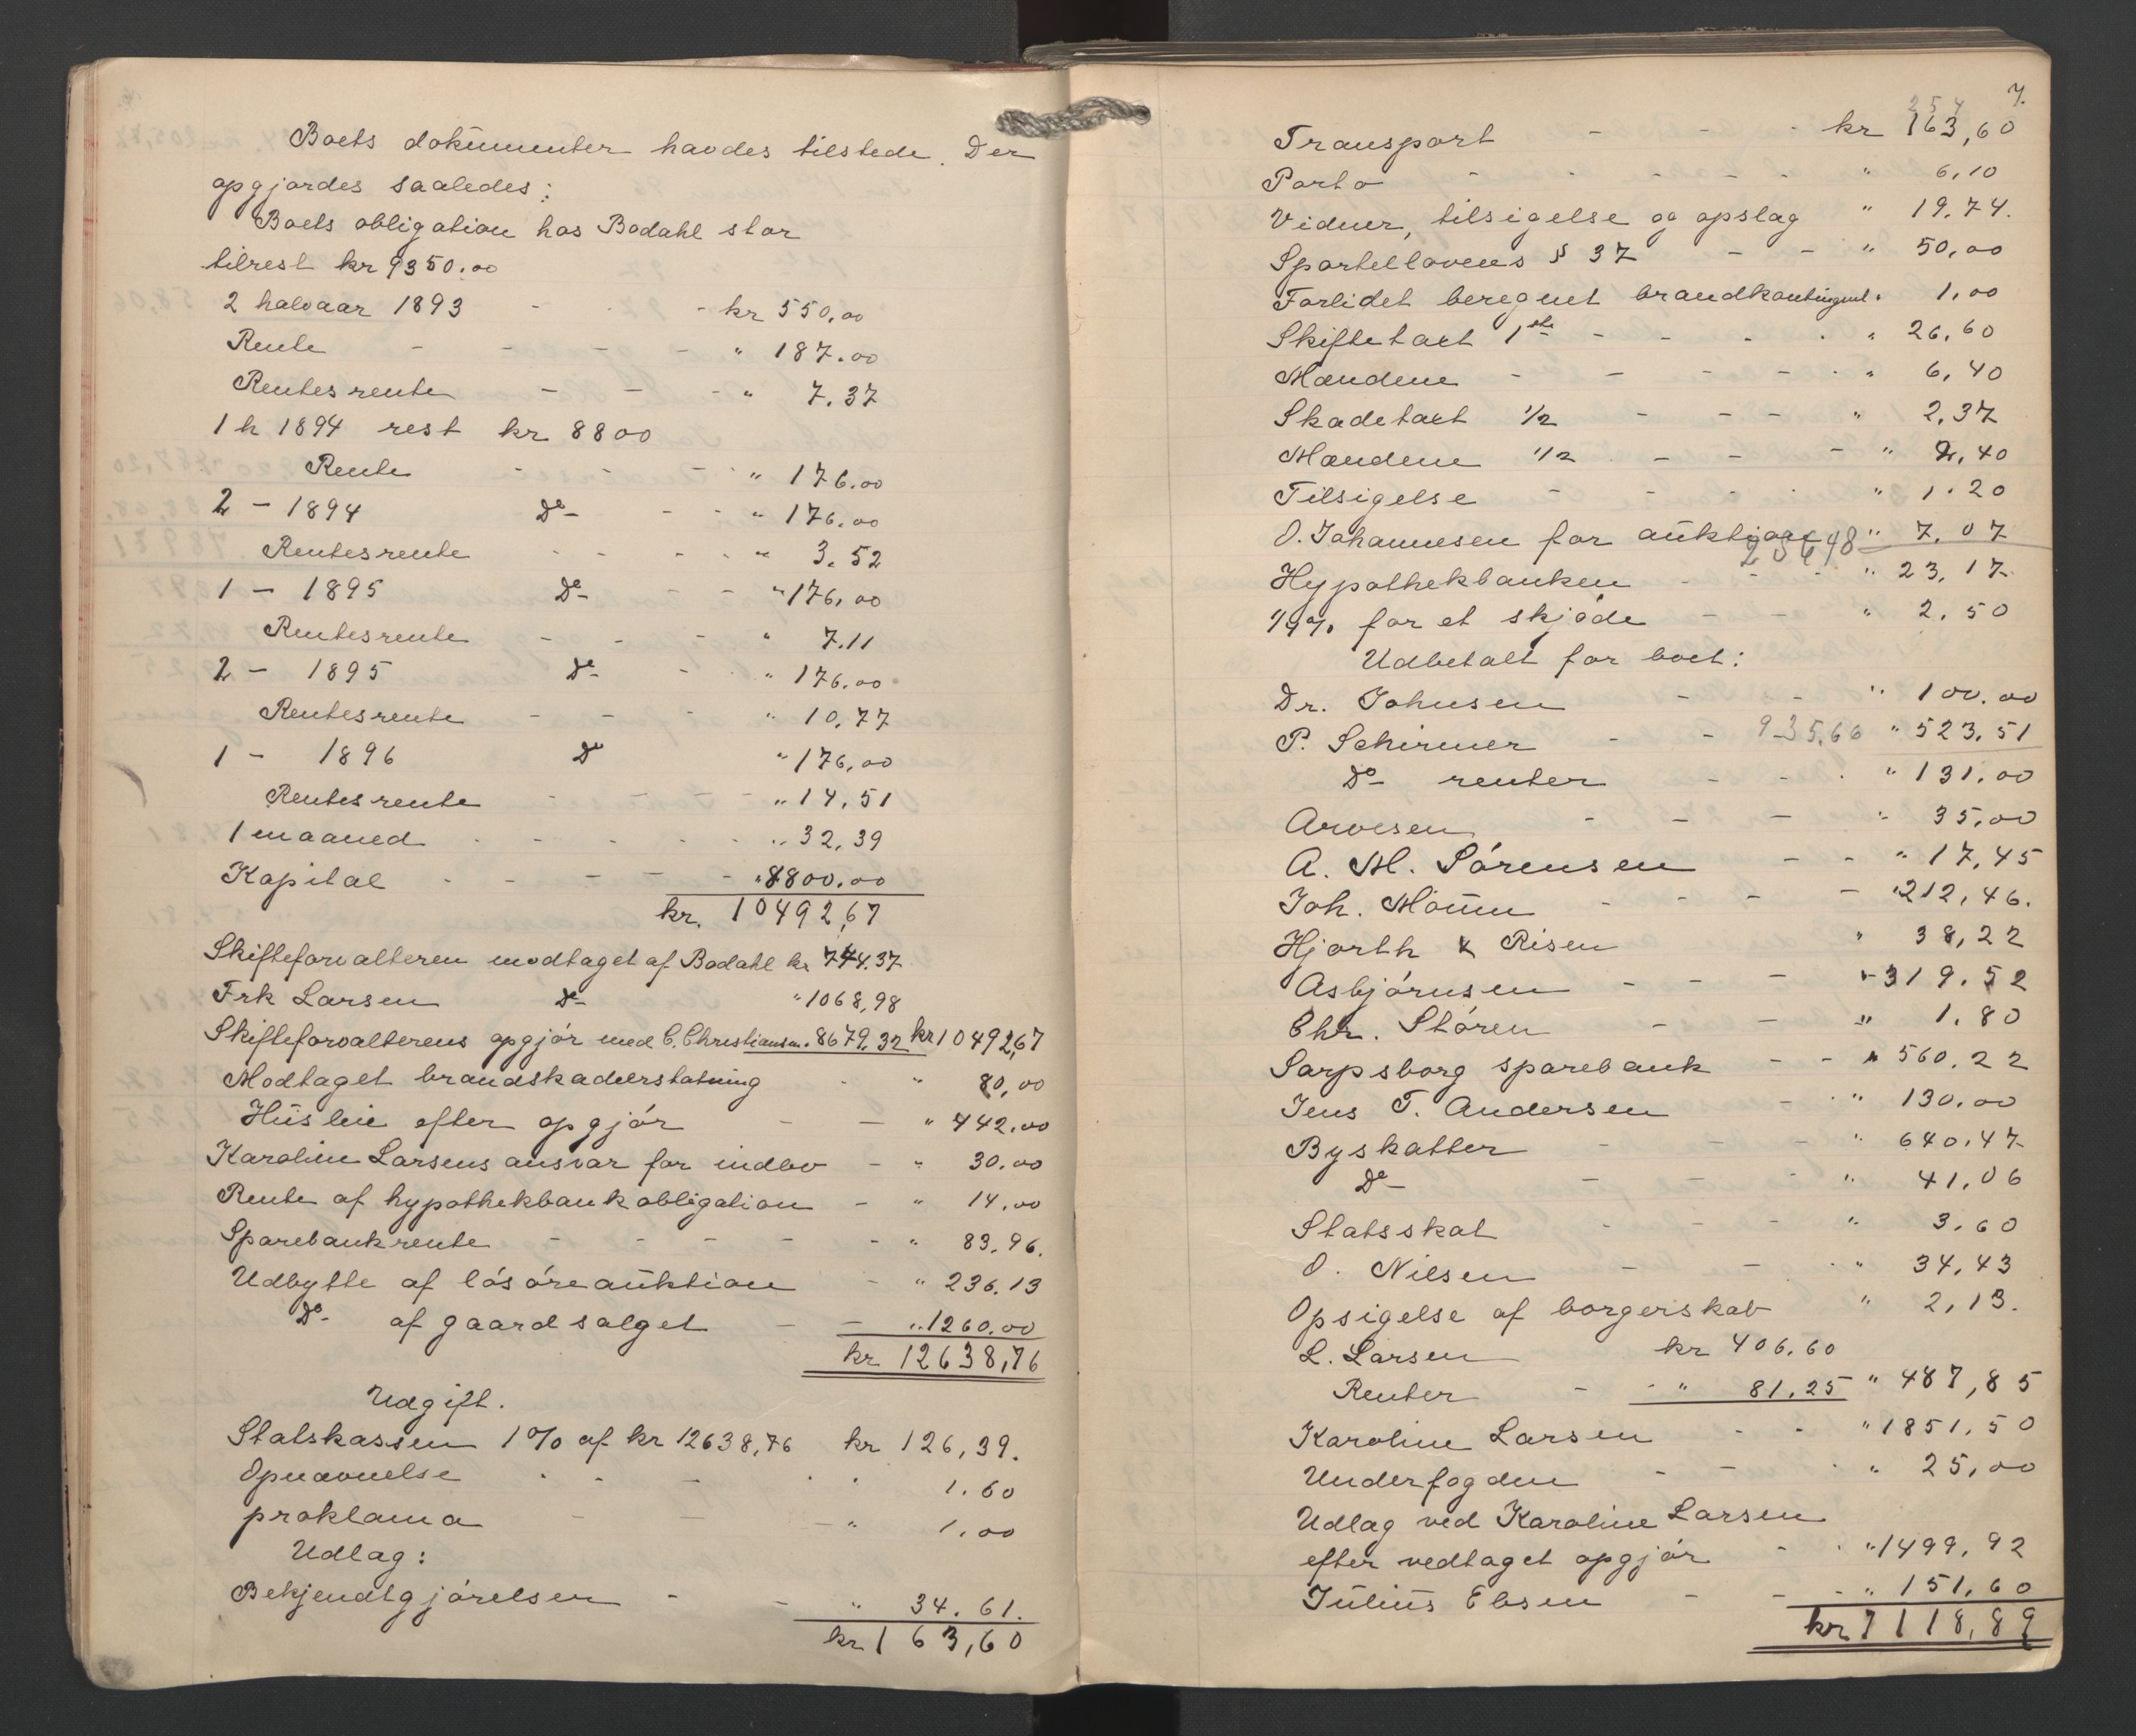 Boets dokumenter havdes tilstede. Der
opgjordes saaledes:
Boets obligation hos Bodahl stor
tilrest kr 9350.00
2 halvaar 1893 - - kr 550,00
Rente - - - - " 187.00
Rentesrente - - - " 7.37
1 h 1894 rest kr 8800
Rente - - - " 176.00
2 - 1894 Do - - " 176.00
Rentesrente - - - - " 3.52
1 - 1895 Do - - " 176,00
Rentesrente - - - " 7.11
2 - 1895 Do - - " 176.00
Rentesrente - - - " 10.77
1 - 1896 Do " 176,00
Rentesrente - - - - " 14,51
1 maaned - - - - " 32,39
Kapital - - - - - " 8800.00
kr. 10492,67
Skifteforvalteren modtaget af Bodahl kr 744.37
Frk Larsen Do " 1068,98
Skifteforvalterens opgjór med C. Christiansen " 8679.32 kr 10492,67
Modtaget brandskadeerstatning - " 80,00
Husleie efter opgjór - - " 442.00
Karoline Larsens ansvar for indbo - " 30.00
Rente af hypothekbankobligation - " 14.00
Sparebankrente - - - - - " 83.96.
Udbytte af lósóreauktion - " 236.13
Do af gaardsalget - - " 1260.00
kr 12638,76
Udgift.
Statskassen 1 % af kr 12638,76 kr 126,39.
Opnævnelse - - - - " 1.60
proklama - - - " 1.00
Udlag:
Bekjendtgjórelser - - " 34.61.
kr 163,60
7.
254
Transport - - - kr 163,60
Porto - - - - - " 6.10
Vidner, tilsigelse og opslag " 19.74.
Sportellovens § 37 - - " 50,00
Forlidet beregnet brandkontingent " 1,00
Skiftetaxt 1ste - - - - " 26,60
Mændene - - - - - " 6,40
Skadetaxt 1/2 - - - " 2,37
Mændene 1/2 - - - " 2,40
Tilsigelse - - - - " 1.20
O. Johannesen for auktioner " 7.07
Hypothekbanken - - - " 23,17
1/4 % for et skjóde - - " 2.50
Udbetalt for boet:
Dr. Johnsen - - " 100.00
P. Schirmer - - 935,66 " 523,51
Do renter - - - " 131.00
Arvesen - - - " 35,00
A. M. Sórensen - - " 17,45
Joh. Moum - - - - " 212,46.
Hjorth & Risen " 38,22
Asbjórnsen - - - " 319.52
Chr. Stóren - - " 1.80
Sarpsborg sparebank - - " 560.22
Jens T. Andersen - - " 130.00
Byskatter - - - " 640.47
Do - - - " 41,06
Statsskat - - - " 3.60
O. Nilsen - - - " 34,43
Opsigelse af borgerskab " 2,13.
L. Larsen kr 406.60
Renter - - " 81.25 " 487,85
Karoline Larsen - - " 1851,50
Underfogden - - - " 25,00
Udlag ved Karoline Larsen
efter vedtaget opgjór - - " 1499,92
Julius Ebsen - - - " 151,60
kr 7118,89